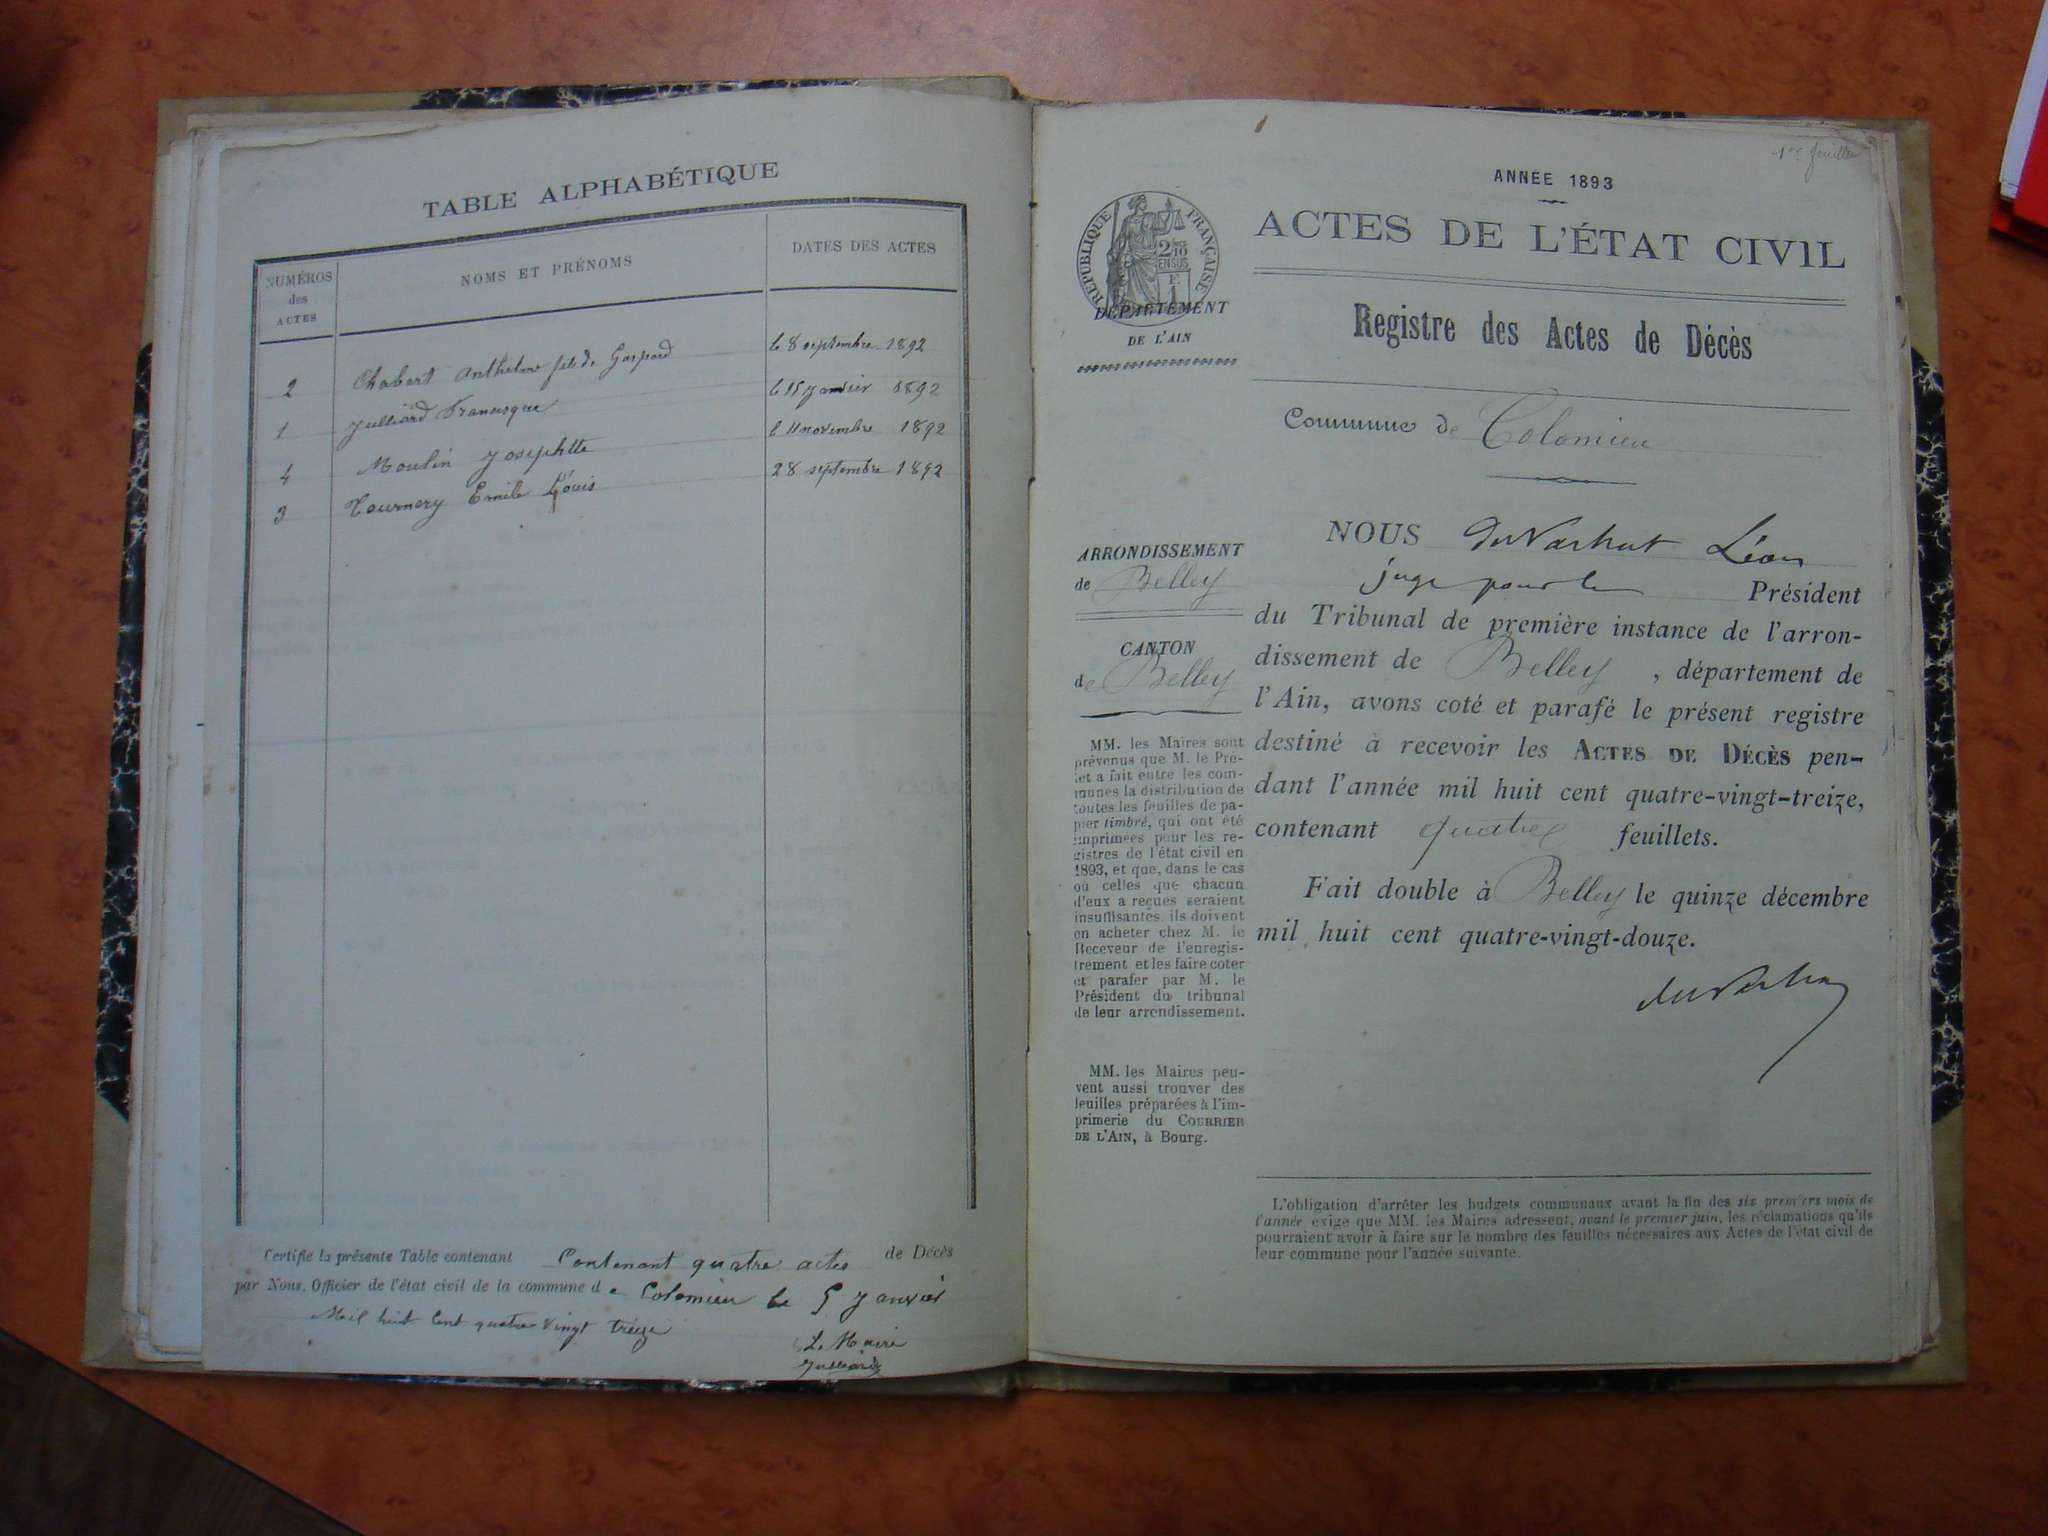 TABLE ALPHABÉTIQUE
NUMÉROS des ACTES
NOMS ET PRÉNOMS
DATES DES ACTES
2 Chabert Anthelme fils de Gaspard le 8 septembre 1892
1 Julliard Francisque le 15 janvier 1892
4 Moulin Josephtte le 11 novembre 1892
3 Tournery Emile Louis 28 septembre 1892
Certifié la présente Table contenant Contenant quatre actes de Décès
par Nous, Officier de l'état civil de la commune de Colomieu le 5 Janvier
Mil huit Cent quatre vingt treize
Le Maire
Julliard
1er feuillet
ANNÉE 1893
ACTES DE L'ÉTAT CIVIL
RÉPUBLIQUE FRANÇAISE
2/10 EN SUS
DÉPARTEMENT
DE L'AIN
Registre des Actes de Décès
Commune de Colomieu
ARRONDISSEMENT
de Belley
CANTON
de Belley
MM. les Maires sont
prévenus que M. le Pré-
fet a fait entre les com-
munes la distribution de
toutes les feuilles de pa-
pier timbré, qui ont été
imprimées pour les re-
gistres de l'état civil en
1893, et que, dans le cas
où celles que chacun
d'eux a reçues seraient
insuffisantes, ils doivent
en acheter chez M. le
Receveur de l'enregis-
trement et les faire coter
et parafer par M. le
Président du tribunal
de leur arrondissement.
MM. les Maires peu-
vent aussi trouver des
feuilles préparées à l'im-
primerie du COURRIER
DE L'AIN, à Bourg.
NOUS Léon
juge pour le Président
du Tribunal de première instance de l'arron-
dissement de Belley, département de
l'Ain, avons coté et parafé le présent registre
destiné à recevoir les ACTES DE DÉCÈS pen-
dant l'année mil huit cent quatre-vingt-treize,
contenant quatre feuillets.
Fait double à Belley le quinze décembre
mil huit cent quatre-vingt-douze.
L'obligation d'arrêter les budgets communaux avant la fin des six premiers mois de
l'année exige que MM. les Maires adressent, avant le premier juin, les réclamations qu'ils
pourraient avoir à faire sur le nombre des feuilles nécessaires aux Actes de l'état civil de
leur commune pour l'année suivante.